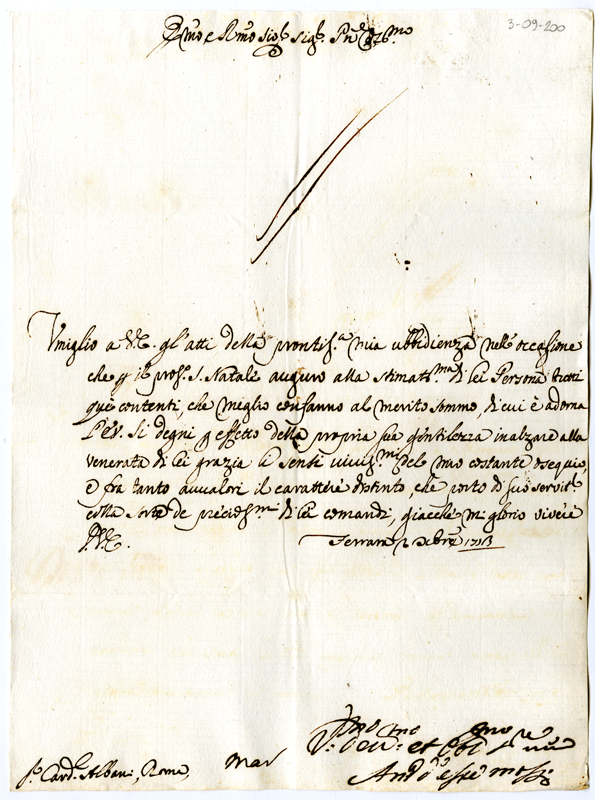 3-09-200
Emo e Rmo Sigr. Sigr. Pne
Umiglio a V.E. gl'atti della prontis.a mia ubbidienza nell'occasione
che p il pross. S. Natale auguro alla stimatis.ma di lei Persona tutti
que contenti, che meglio confanno al merito sommo, di cui è adorna
l'E.V. Si degni p effetto della propria sua gentilezza inalzare alla
venerata di lei grazia li sensi vivis.mi del mio costante ossequio,
e fra tanto avvalori il carattere distinto, che porto di suo servit.e
colla sorte de preciosis.mi di lei comandi, giacché mi glorio vivere
D.V.E. Ferrara Xbre 1713
Mar
Sr. Card. Albani, Roma